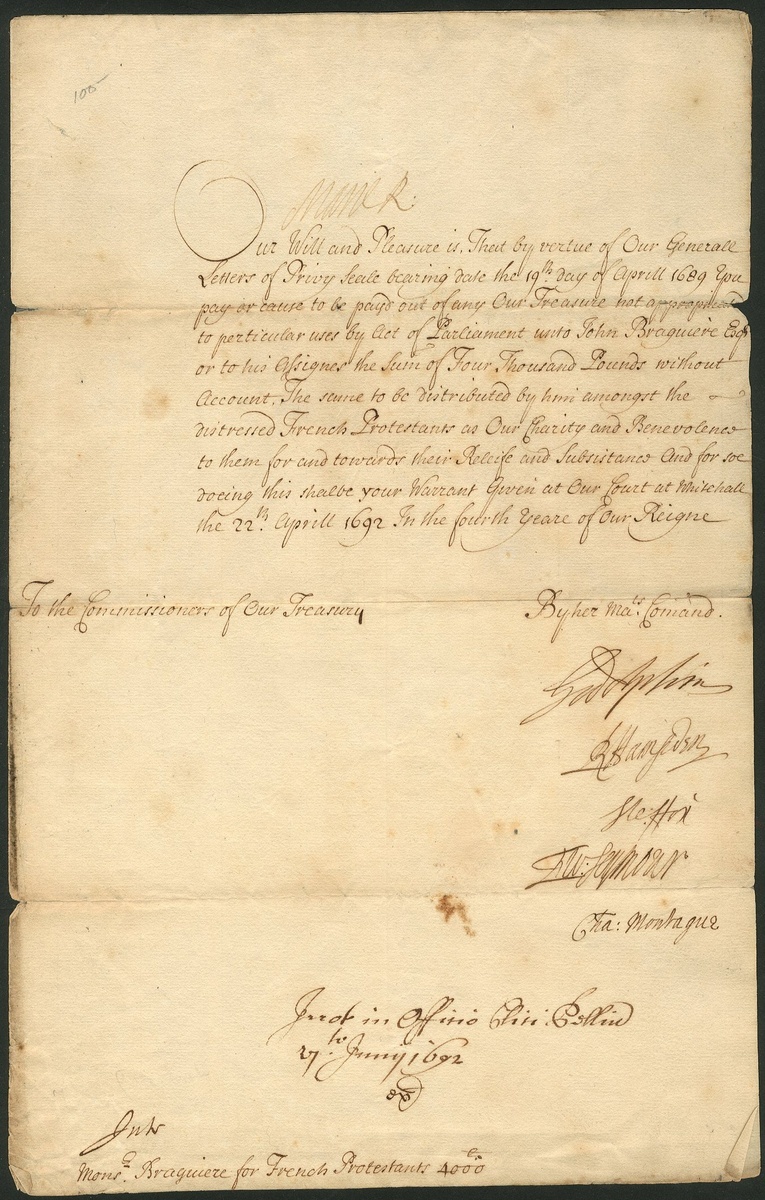 100-
Marie R:
Our Will and Pleasure is, That by vertue of Our Generall
Letters of Privy Seale bearing date the 19th day of Aprill 1689 You
pay or cause to be payd out of any Our Treasure not appropriated
to perticular uses by Act of Parliament unto John Braguiere Esqr
or to his Assignes the Sum of Four Thousand Pounds without
Account. The same to be distributed by him amongst the
distressed French Protestants as Our Charity and Benevolence
to them for and towards their Releife and Subsistance And for soe
doeing this shalbe your Warrant Given at Our Court at Whitehall
the 22th Aprill 1692 In the fourth Yeare of Our Reigne
To the Commissioners of Our Treasury
By her Mats Comand.
Godolphin
R Hampden
Ste: ffox
Edw: Seymour
Cha: Montague
Irrot in Officio Clici: Pellium
Junij 1692
Intr
Monsr Braguiere for French Protestants 4000li